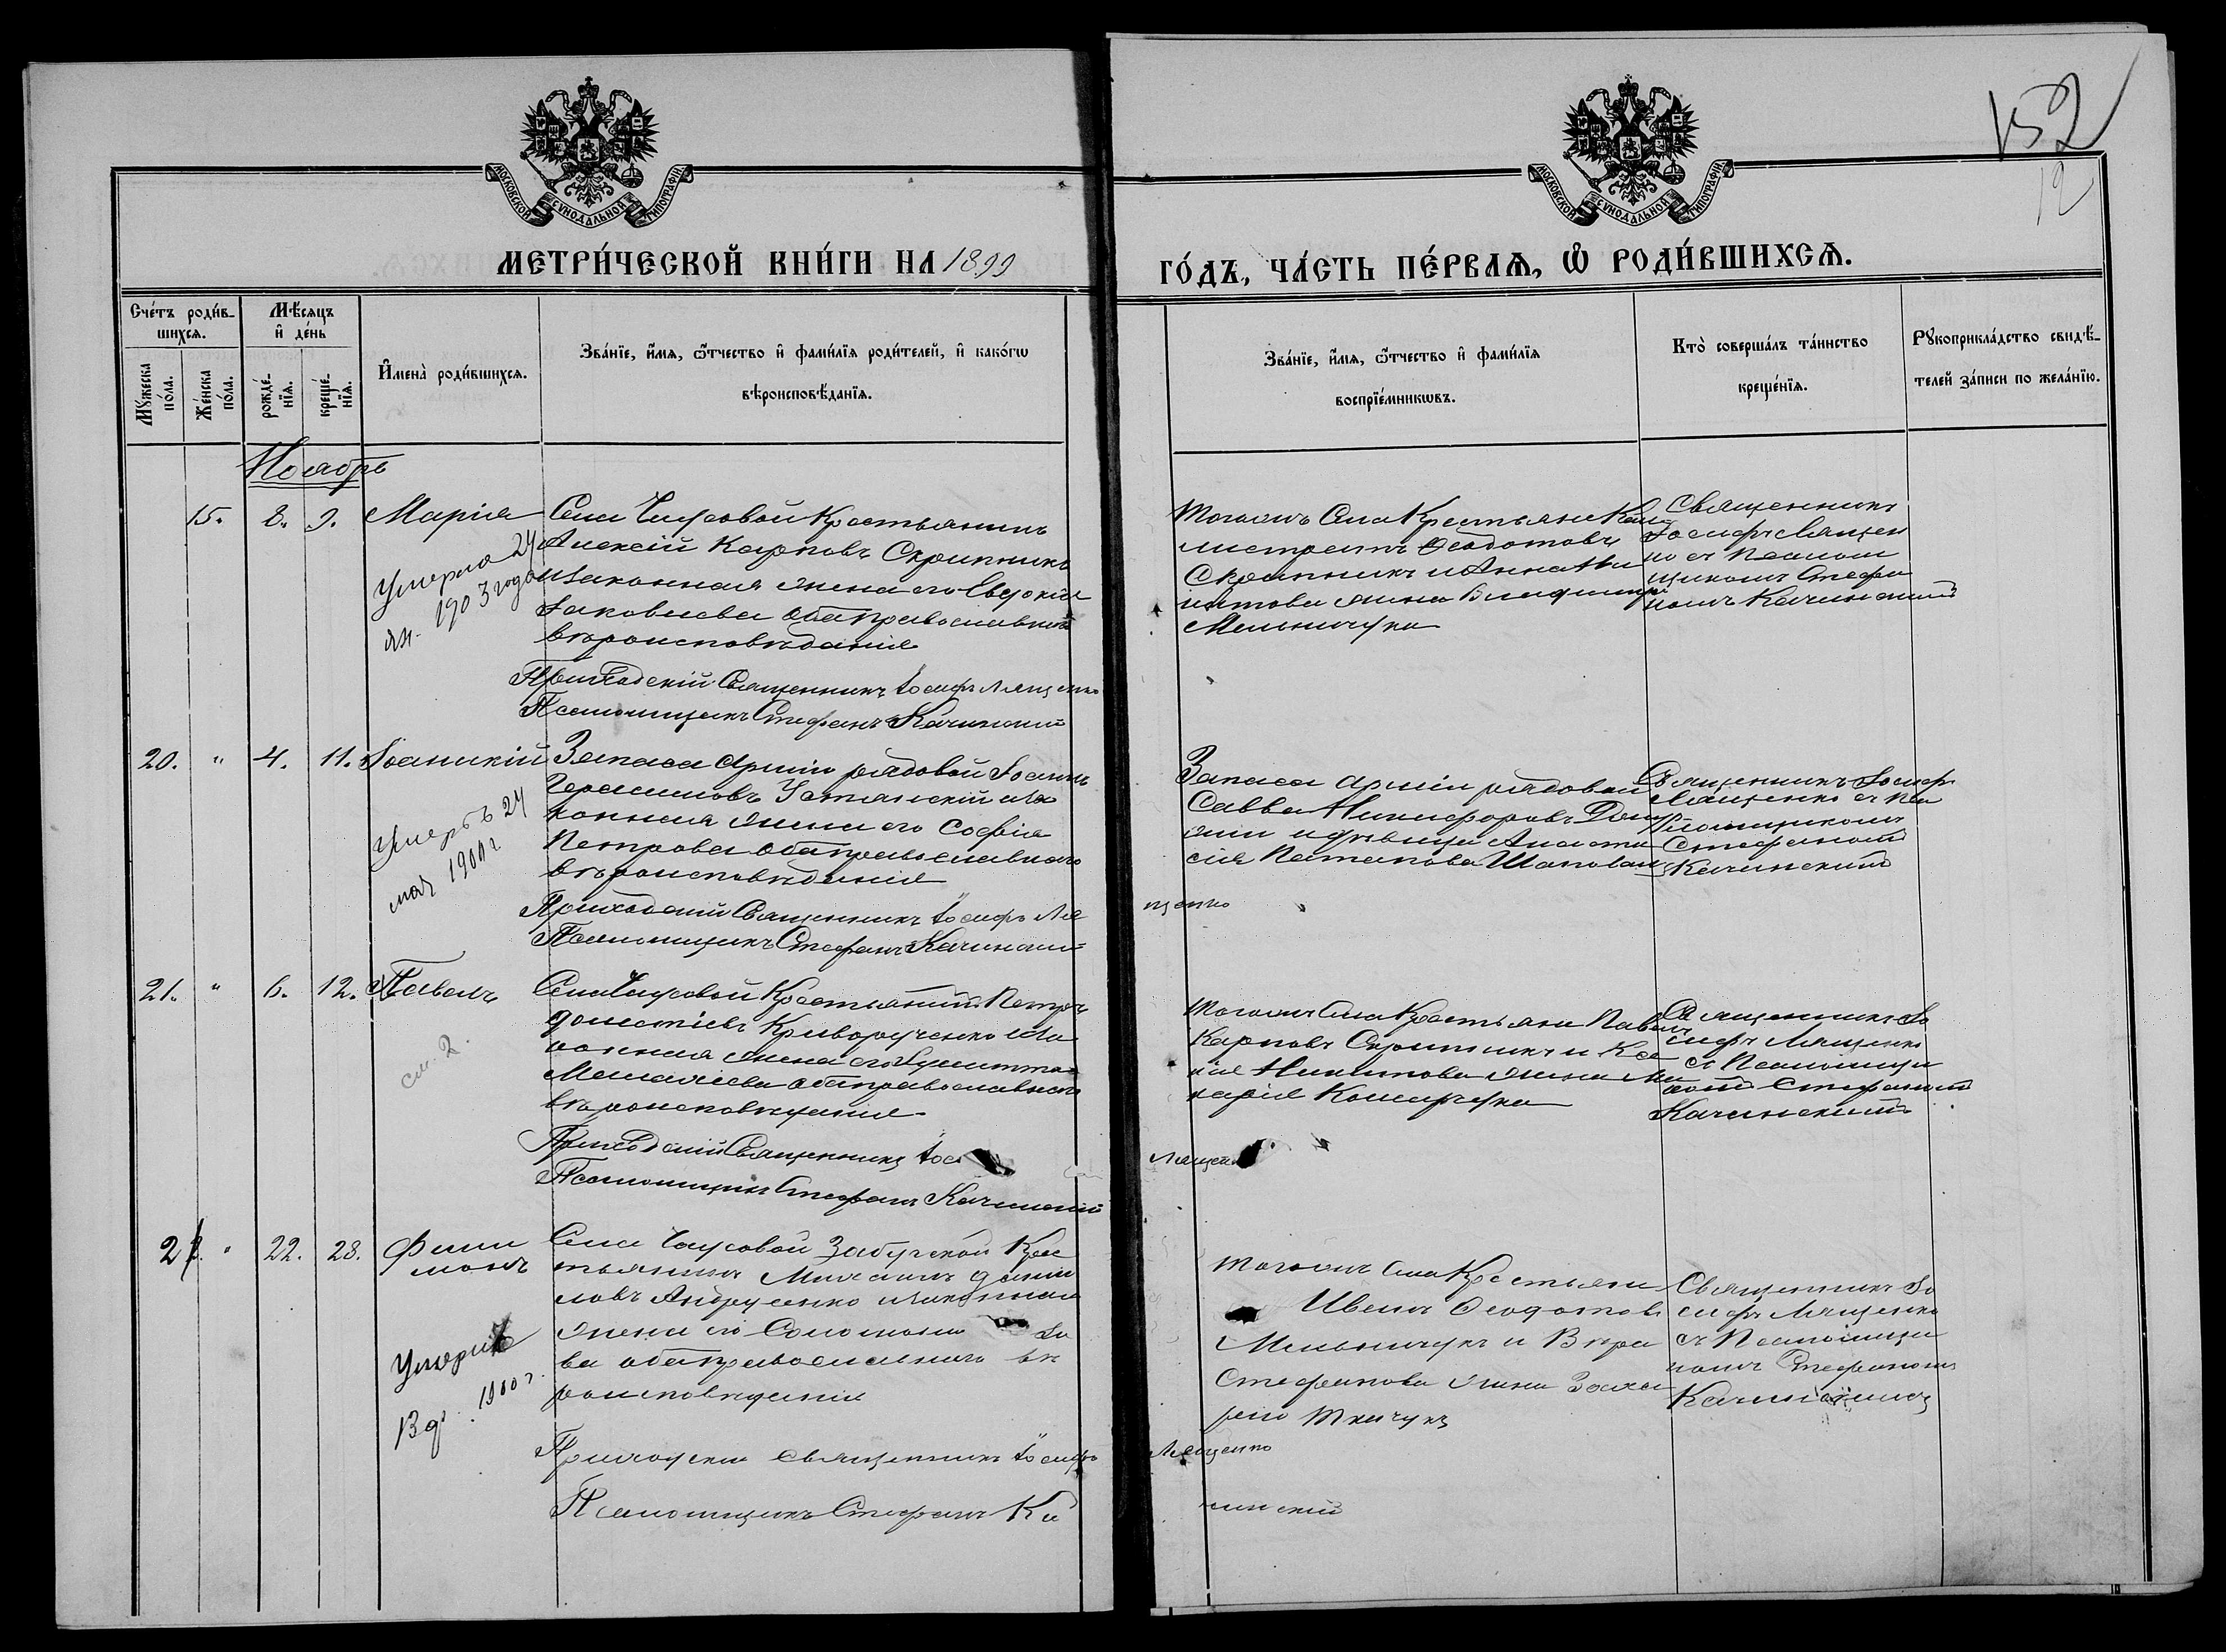 152
12
МОСКОВСКОЙ СѴНОДАЛЬНОЙ ТИПОГРАФІИ
МОСКОВСКОЙ СѴНОДАЛЬНОЙ ТИПОГРАФІИ
МЕТРИ́ЧЕСКОЙ КНИ́ГИ НА 1899
ГО́ДЪ, ЧА́СТЬ ПЕ́РВАѦ, Ѡ҆ РОДИ́ВШИХСѦ.
Сче́тъ роди́в-
шихсѧ.
Мꙋ́жеска по́ла.
Же́нска по́ла.
Мѣ́сѧцъ
и҆ де́нь
рожде́-нїѧ.
креще́-нїѧ.
И҆мена̀ роди́вшихсѧ.
Зва́нїе, и҆́мѧ, ѻ҆́тчество и҆ фами́лїѧ роди́телей, и҆ како́гѡ
вѣроисповѣ́данїѧ.
Зва́нїе, и҆́мѧ, ѻ҆́тчество и҆ фами́лїѧ
воспрїе́мникѡвъ.
Кто̀ соверша́лъ та́инство
креще́нїѧ.
Рꙋкоприкла́дство свидѣ́-
телей за́писи по жела́нїю.
Ноябрь
15. 8. 9. Марія
Умерла 24
ян. 1903 года
Села Чаусовой Крестьянинъ
Алексій Карповъ Скрипникъ
и законная жена его Евдокія
Іаковлева оба православнаго
вѣроисповѣданія
Приходскій Священникъ Іосифъ Лященко
Псаломщикъ Стефанъ Качинскій
тогожъ Села Крестьяне
Ѳеодотовъ
Скрипникъ и Анна
жена
Мельничука
Священникъ
Іосифъ Лящен
ко съ Псалом
щикомъ Стефа
номъ Качинскимъ
20. " 4. 11. Іоанникій
Умеръ 24
мая 1900 г.
Запаса Арміи рядовой Іоаннъ
Герасимовъ и за
конная жена его Софія
Петрова оба православнаго
вѣроисповѣданія
Приходскій Священникъ Іосифъ Ля
щенко
Псаломщикъ Стефанъ Качинскій
Запаса Арміи рядовой
Савва Никифоровъ
и дѣвица Анаста
сія
Священникъ Іосифъ
Лященко съ Пса
ломщикомъ
Стефаномъ
Качинскимъ
21. " 6. 12. Павелъ
см. 2.
Села Чаусовой Крестьянинъ Петръ
Криворученко и за
конная жена его
оба православнаго
вѣроисповѣданія
Приходскій Священникъ Іос
Лящен
Псаломщикъ Стефанъ Качинскій
тогожъ Села Крестьяне Павелъ
Карповъ Скрипникъ и Ксе
нія Никитова жена Ма
карія
Священникъ Іо
сифъ Лященко
съ Псаломщи
комъ Стефаномъ
Качинскимъ
2 " 22. 28. Фили
монъ
Умеръ
1900 г.
Села Чаусовой Забугской Крес
тьянинъ Михаилъ Дани
ловъ Андрусенко и законная
жена его Соломонія
ва оба православнаго вѣ
роисповѣданія
Приходскій Священникъ Іосифъ
Лященко
Псаломщикъ Стефанъ Ка
чинскій
тогожъ Села Крестьяне
Иванъ Ѳеодотовъ
Мельничукъ и Вѣра
Стефанова жена Заха
рія Ткачукъ
Священникъ Іо
сифъ Лященко
съ Псаломщи
комъ Стефаномъ
Качинскимъ